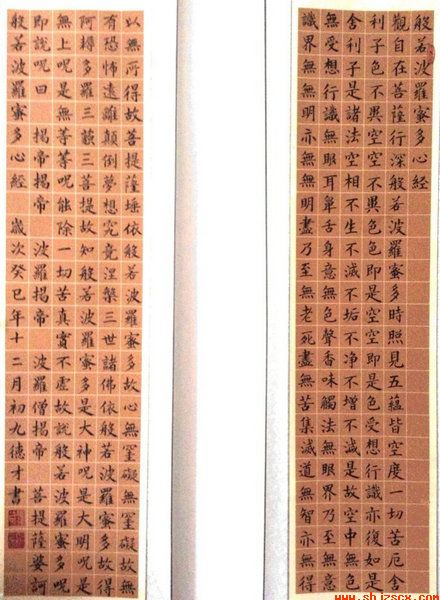 般若波羅蜜多心經
觀自在菩薩行深般若波羅蜜多時照見五蘊皆空度一切苦厄舍
利子色不異空空不異色色即是空空即是色受想行識亦復如是
舍利子是諸法空相不生不滅不垢不淨不增不減是故空中無色
無受想行識無眼耳鼻舌身意無色聲香味觸法無眼界乃至無意
識界無無明亦無無明盡乃至無老死盡無苦集滅道無智亦無得
以無所得故菩提薩埵依般若波羅蜜多故心無罣礙無罣礙故無
有恐怖遠離顛倒夢想究竟涅槃三世諸佛依般若波羅蜜多故得
阿耨多羅三藐三菩提故知般若波羅蜜多是大神呪是大明呪是
無上呪是無等等呪能除一切苦真實不虛故說般若波羅蜜多呪
即說呪曰 揭帝揭帝 波羅揭帝 波羅僧揭帝 菩提薩婆訶
般若波羅蜜多心經 歲次癸巳年十二月初九德才書
www.shjzscx.com